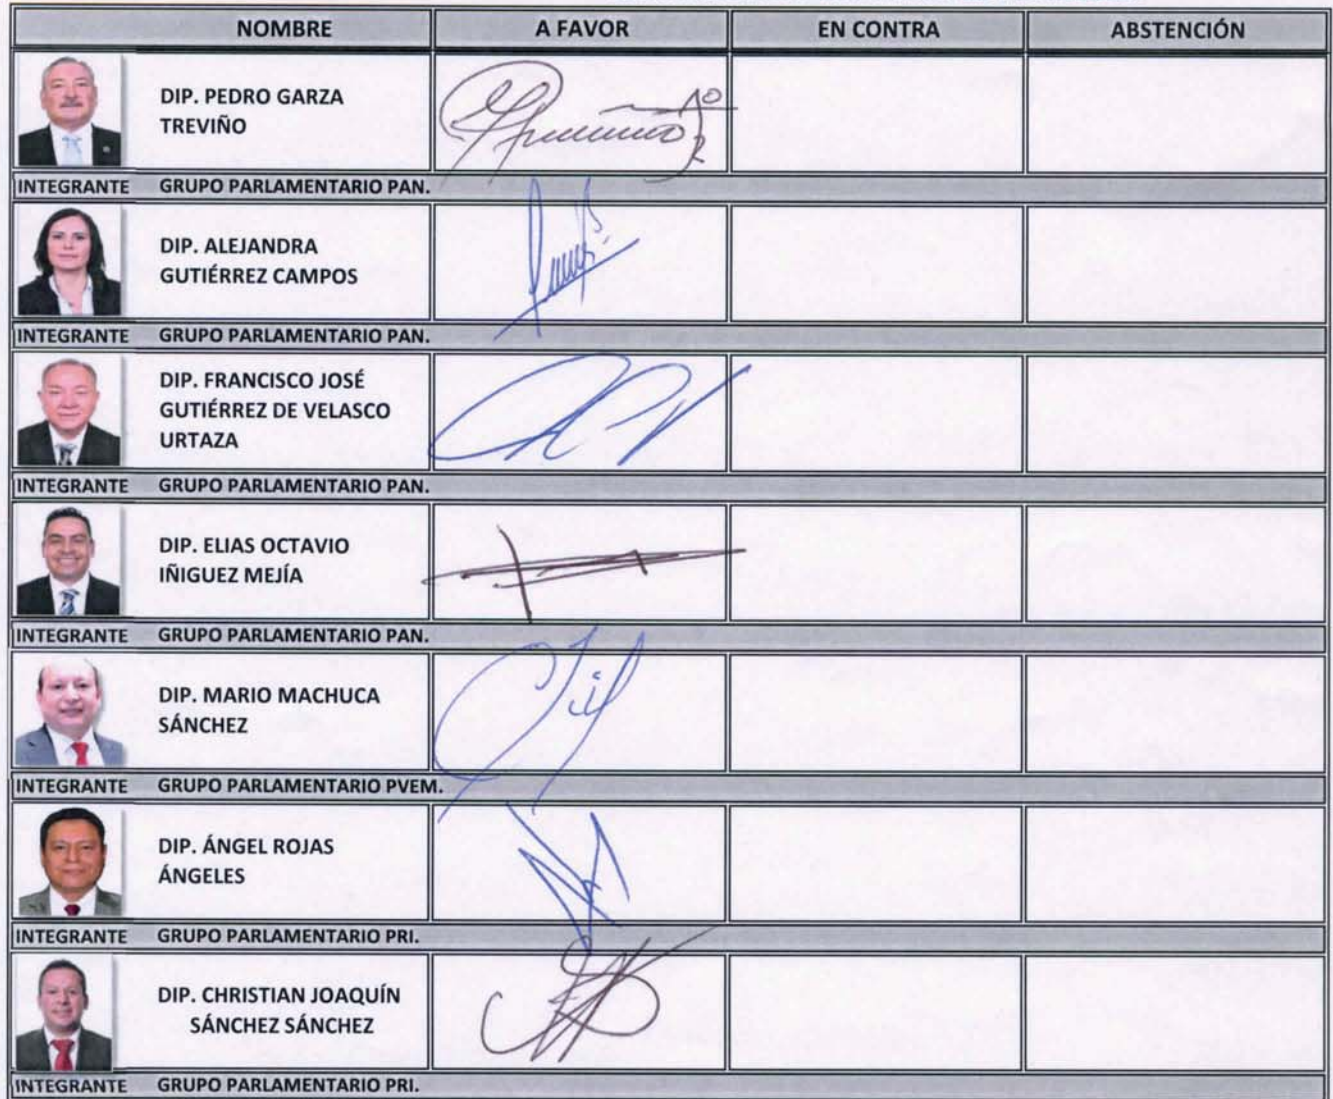 NOMBRE A FAVOR EN CONTRA ABSTENCIÓN
DIP. PEDRO GARZA
TREVIÑO
INTEGRANTE GRUPO PARLAMENTARIO PAN.
DIP. ALEJANDRA
GUTIÉRREZ CAMPOS
INTEGRANTE GRUPO PARLAMENTARIO PAN.
DIP. FRANCISCO JOSÉ
GUTIÉRREZ DE VELASCO
URTAZA
INTEGRANTE GRUPO PARLAMENTARIO PAN.
DIP. ELIAS OCTAVIO
IÑIGUEZ MEJÍA
INTEGRANTE GRUPO PARLAMENTARIO PAN.
DIP. MARIO MACHUCA
SÁNCHEZ
INTEGRANTE GRUPO PARLAMENTARIO PVEM.
DIP. ÁNGEL ROJAS
ÁNGELES
INTEGRANTE GRUPO PARLAMENTARIO PRI.
DIP. CHRISTIAN JOAQUÍN
SÁNCHEZ SÁNCHEZ
INTEGRANTE GRUPO PARLAMENTARIO PRI.